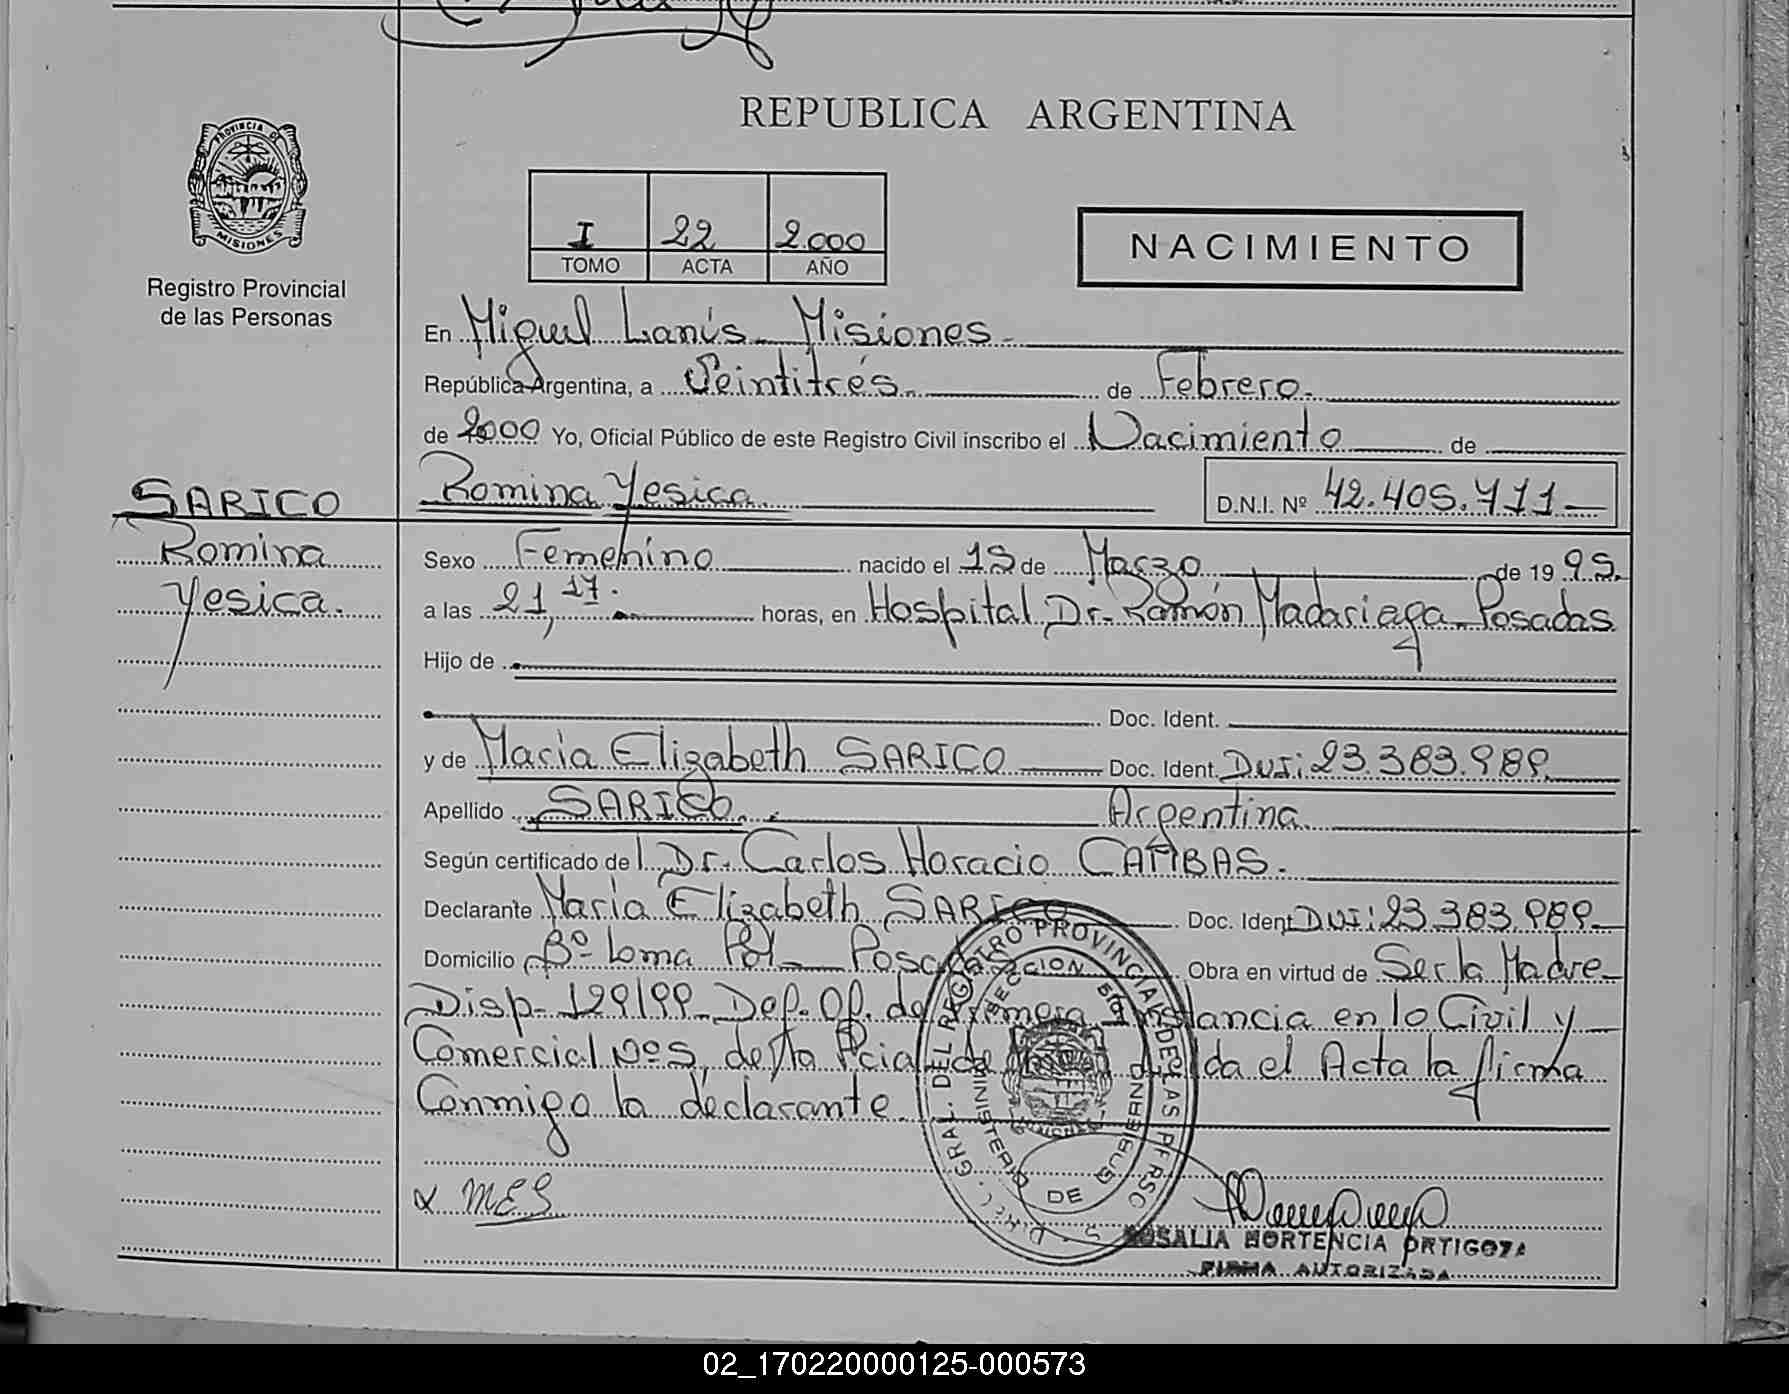 REPUBLICA ARGENTINA
PROVINCIA DE
MISIONES
Registro Provincial
de las Personas
I 22 2.000
TOMO ACTA AÑO
NACIMIENTO
En Miguel Lanús Misiones
República Argentina, a Veintitrés de Febrero.
de 2000 Yo, Oficial Público de este Registro Civil inscribo el Nacimiento de
Romina Yesica. D.N.I. Nº 42.405.711
SARICO
Romina
Yesica.
Sexo Femenino nacido el 15 de Marzo de 19 95.
a las 21,17. horas, en Hospital Dr. Ramón Madariaga Posadas
Hijo de
Doc. Ident.
y de María Elizabeth SARICO Doc. Ident. DUI: 23.383.989
Apellido SARICO. Argentina
Según certificado del Dr. Carlos Horacio CAMBAS.
Declarante María Elizabeth SARICO Doc. Ident DUI: 23.383.989
Domicilio Bº Loma Pol Posadas Obra en virtud de Ser la Madre
Disp- 129/99- Def. Of. de Primera Instancia en lo Civil y
Comercial Nº5, de la Pcia de leída el Acta la firma
Conmigo la declarante
MES
DIREC. GRAL. DEL REGISTRO PROVINCIAL DE LAS PERSONAS
DE
ROSALIA HORTENCIA ORTIGOZA
FIRMA AUTORIZADA
02_170220000125-000573